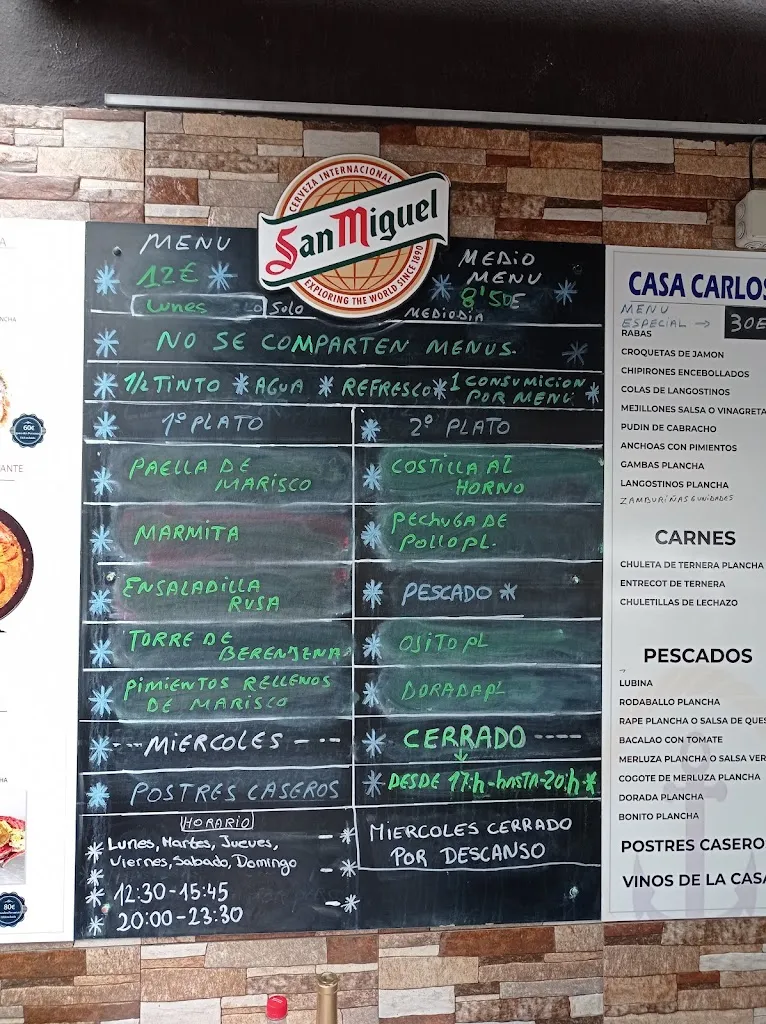 CERVEZA INTERNACIONAL
San Miguel
EXPLORING THE WORLD SINCE 1890
MENU
12€
Lunes
Solo
MEDIO
MENU
8'50E
MEDIODIA
NO SE COMPARTEN MENUS.
1/2 TINTO * AGUA * REFRESCO * 1 CONSUMICION
POR MENU
1º PLATO
2º PLATO
PAELLA DE
MARISCO
COSTILLA AL
HORNO
MARMITA
PECHUGA DE
POLLO PL.
ENSALADILLA
RUSA
PESCADO *
TORRE DE
BERENJENA
OSITO PL
PIMIENTOS RELLENOS
DE MARISCO
DORADA PL
---MIERCOLES---
CERRADO ----
POSTRES CASEROS
DESDE 17:h-HASTA-20:h
HORARIO
Lunes, Martes, Jueves,
Viernes, Sabado, Domingo
12:30-15:45
20:00-23:30
MIERCOLES CERRADO
POR DESCANSO
CASA CARLOS
MENU
ESPECIAL → 30E
RABAS
CROQUETAS DE JAMON
CHIPIRONES ENCEBOLLADOS
COLAS DE LANGOSTINOS
MEJILLONES SALSA O VINAGRETA
PUDIN DE CABRACHO
ANCHOAS CON PIMIENTOS
GAMBAS PLANCHA
LANGOSTINOS PLANCHA
ZAMBURIÑAS 6 UNIDADES
CARNES
CHULETA DE TERNERA PLANCHA
ENTRECOT DE TERNERA
CHULETILLAS DE LECHAZO
PESCADOS
LUBINA
RODABALLO PLANCHA
RAPE PLANCHA O SALSA DE QUES
BACALAO CON TOMATE
MERLUZA PLANCHA O SALSA VER
COGOTE DE MERLUZA PLANCHA
DORADA PLANCHA
BONITO PLANCHA
POSTRES CASERO
VINOS DE LA CASA
A
NCHA
60€
ANTE
HA
80€